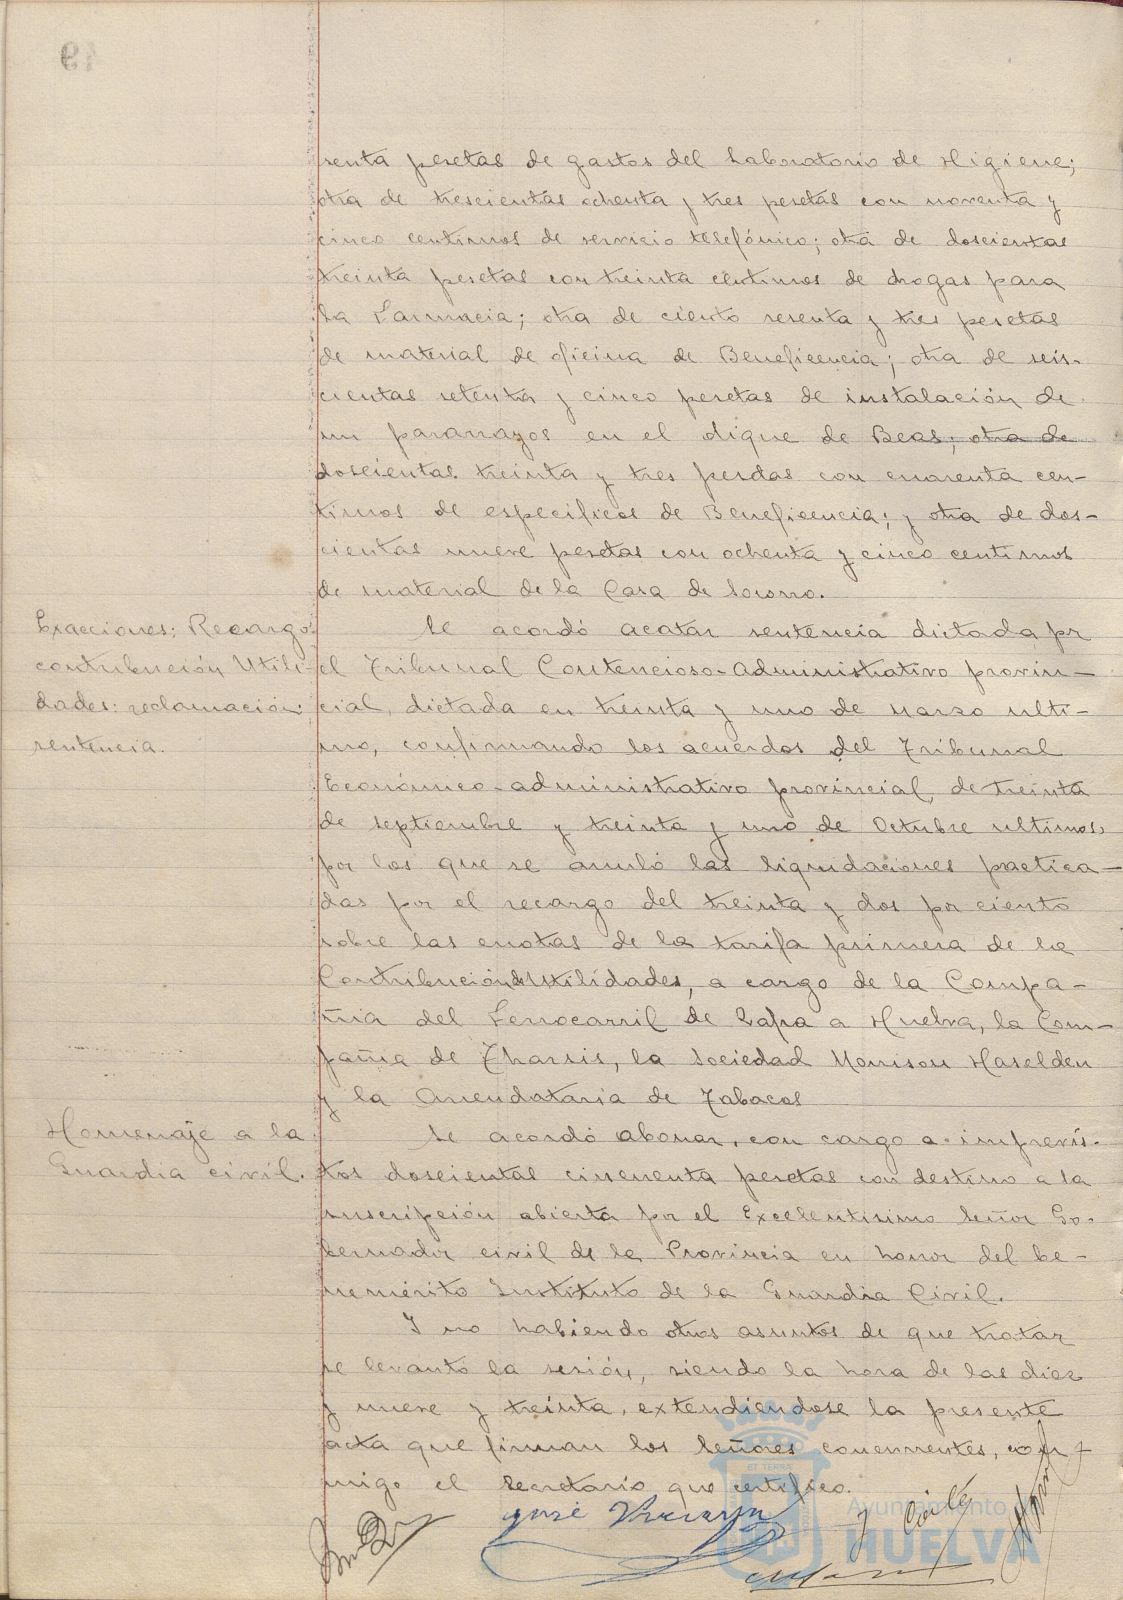 renta pesetas de gastos del Laboratorio de Higiene;
otra de trescientas ochenta y tres pesetas con noventa y
cinco centimos de servicio telefónico; otra de doscientas
treinta pesetas con treinta centimos de drogas para
la Farmacia; otra de ciento sesenta y tres pesetas
de material de oficina de Beneficencia; otra de seis-
cientas setenta y cinco pesetas de instalación de
un pararrayos en el dique de Beas; otra de
doscientas treinta y tres pesetas con cuarenta cen-
timos de especificos de Beneficencia; y otra de dos-
cientas nueve pesetas con ochenta y cinco centimos
de material de la Casa de Socorro.
Exacciones; Recargo
contribución Utili-
dades: reclamación:
sentencia.
Se acordó acatar sentencia dictada pr
el Tribunal Contencioso-administrativo provin-
cial, dictada en treinta y uno de Marzo ulti-
mo, confirmando los acuerdos del Tribunal
Económico-administrativo provincial, de treinta
de septiembre y treinta y uno de Octubre ultimos,
por los que se anuló las liquidaciones practica-
das por el recargo del treinta y dos por ciento
sobre las cuotas de la tarifa primera de la
Contribución de Utilidades, a cargo de la Compa-
ñia del Ferrocarril de Zafra a Huelva, la Com-
pañia de Tharsis, la Sociedad Morrison Haselden
y la Arrendataria de Tabacos
Homenaje a la
Guardia civil.
Se acordó abonar, con cargo a imprevis-
tos doscientas cincuenta pesetas con destino a la
suscripción abierta por el Excelentisimo Señor Go-
bernador civil de la Provincia en honor del be-
nemérito Instituto de la Guardia Civil.
Y no habiendo otros asuntos de que tratar
se levantó la sesión, siendo la hora de las diez
y nueve y treinta, extendiendose la presente
acta que firman los Señores concurrentes, con-
migo el Secretario que certifico.
José
ET TERRA
Ayuntamiento de
HUELVA